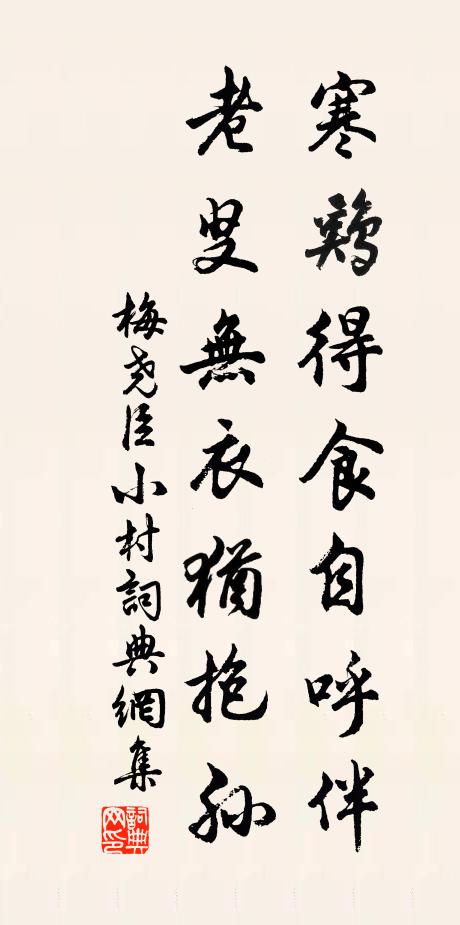 寒鷄得食自呼伴
老叟無衣猶抱孫
梅尭臣小村詞典網集
詞典网印